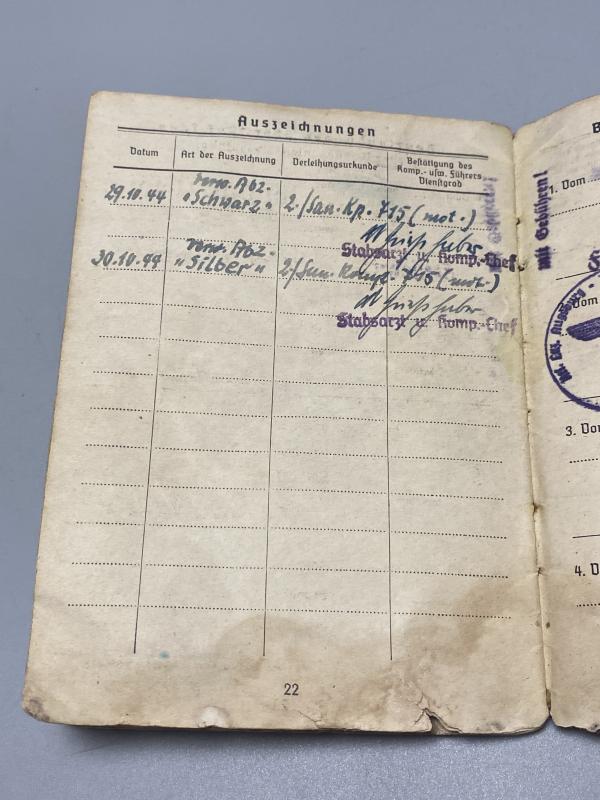 Auszeichnungen
Datum
Art der Auszeichnung
Verleihungsurkunde
Bestätigung des
Komp.- usw. Führers
Dienstgrad
29.10.44 verw. Abz. "Schwarz" 2./San. Kp. 715 (mot.)
Stabsarzt u. Komp.-Chef
30.10.44 verw. Abz. "Silber" 2/San. Komp. 715 (mot.)
Stabsarzt u. Komp.-Chef
22
B
1. Vom
Mit Gebühren!
Vom
Augsburg
3. Vom
4. D